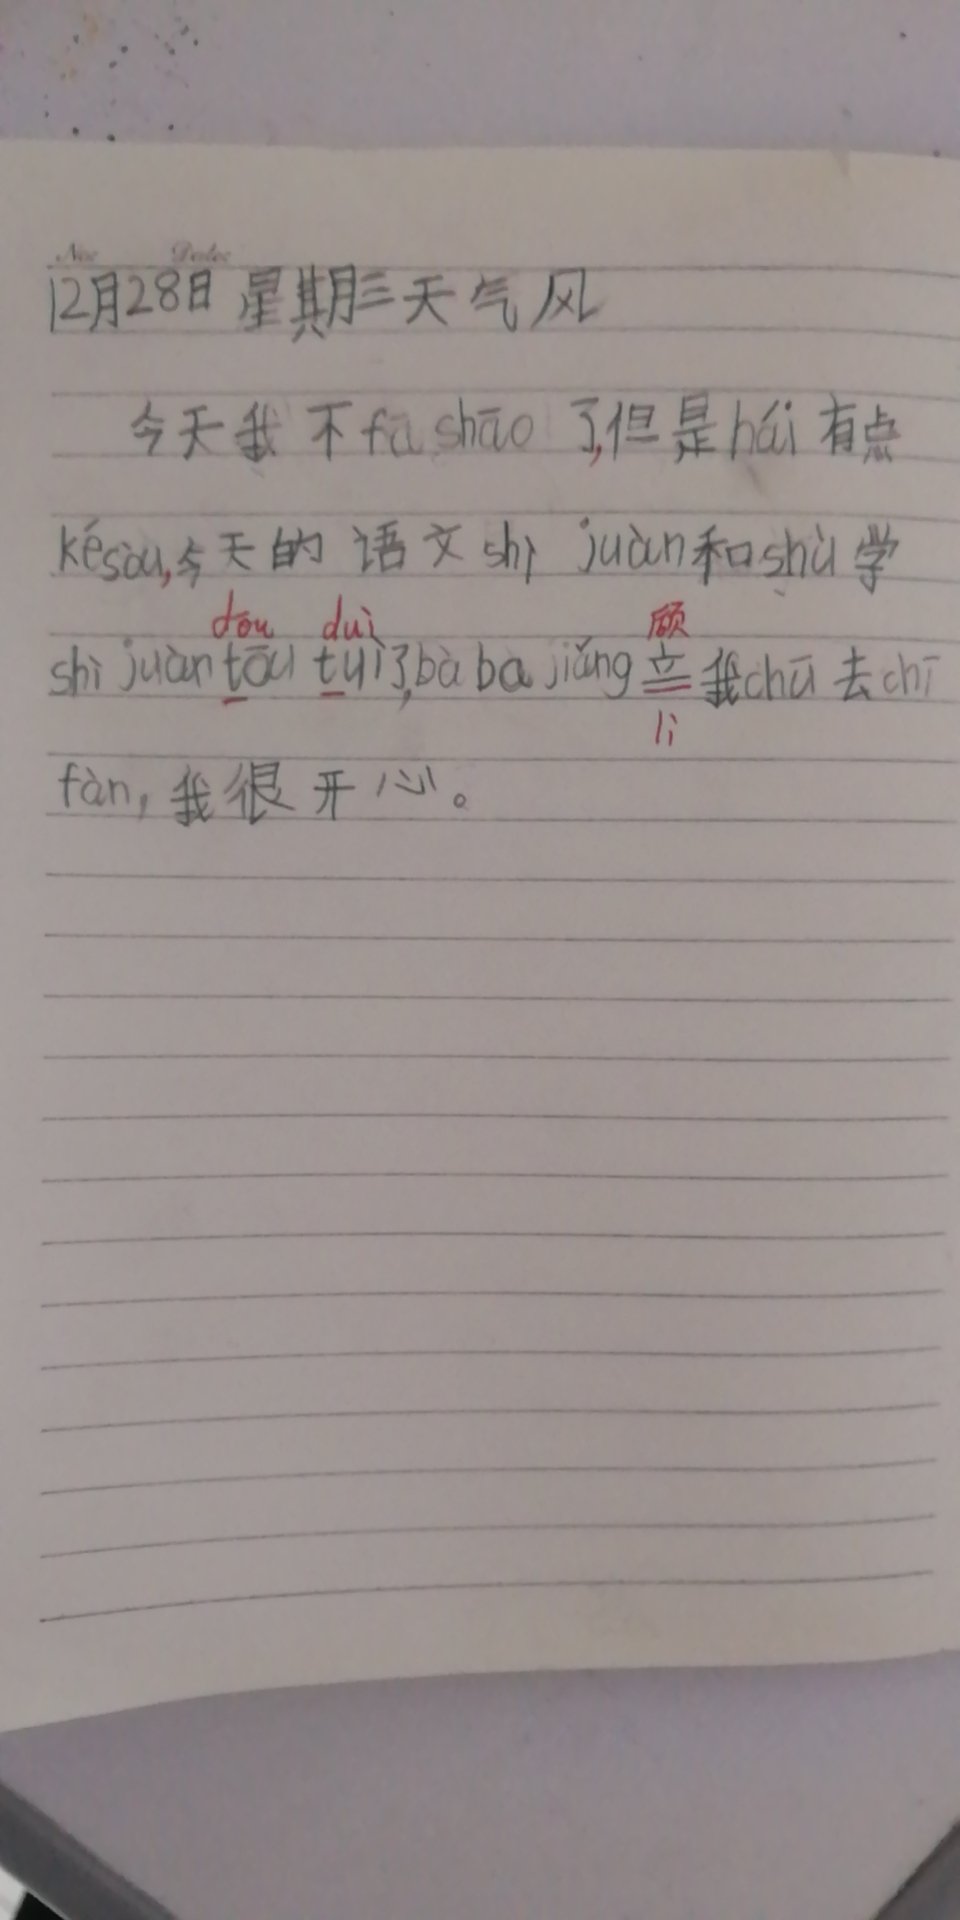 12月28日 星期三天气风
今天我不fā shāo了,但是hái有点
késòu,今天的语文shì juàn和shù学
dōu duì 顾
shì juàn tōu tuì了,bà ba jiǎng立我chū去chī
lì
fàn,我很开心。